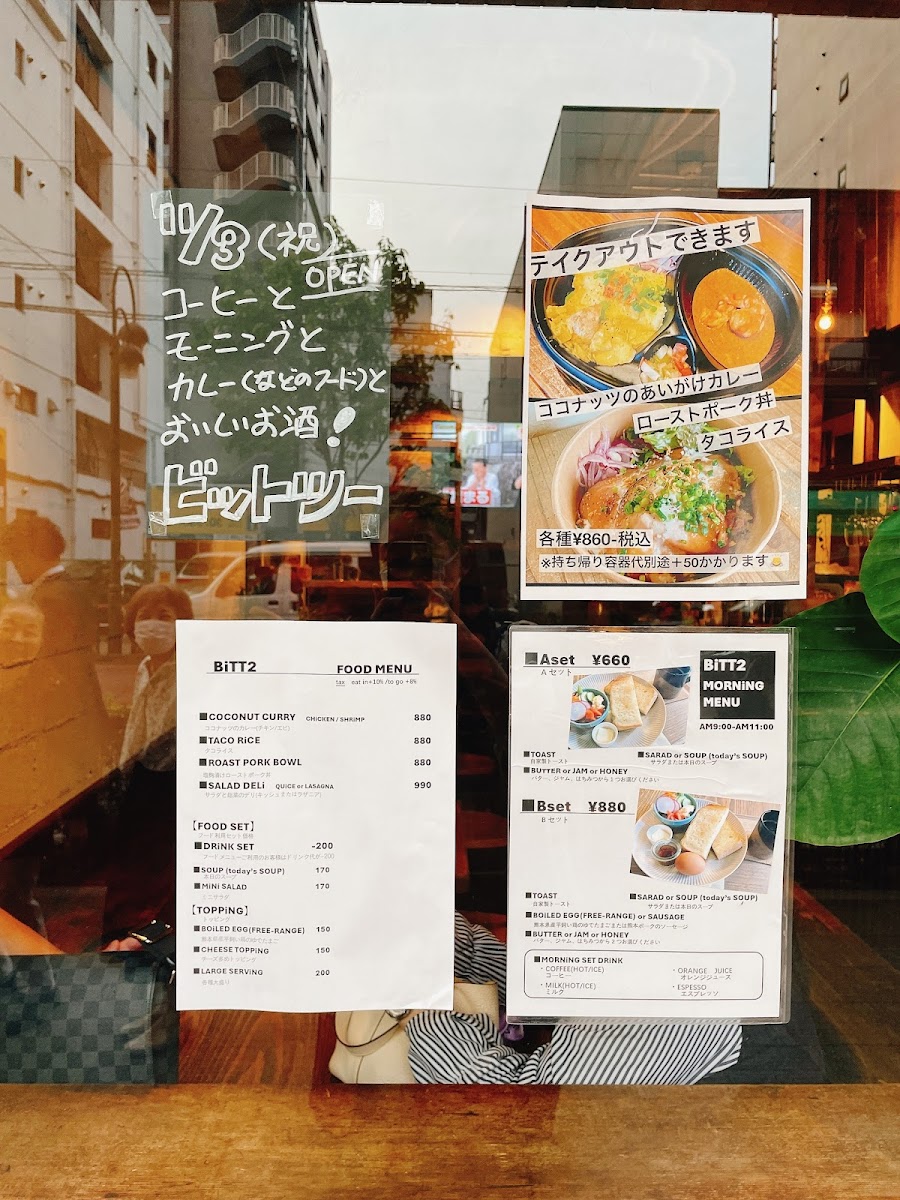 11/3(祝)
OPEN
コーヒーと
モーニングと
カレー(などのフード)と
おいしいお酒!
ビットツー
テイクアウトできます
ココナッツのあいがけカレー
ローストポーク丼
タコライス
各種¥860-税込
※持ち帰り容器代別途+50かかります
まる
BiTT2
FOOD MENU
tax eat in+10% /to go +8%
■COCONUT CURRY CHiCKEN / SHRiMP 880
ココナッツのカレー(チキン/エビ)
■TACO RiCE 880
タコライス
■ROAST PORK BOWL 880
塩麹漬けローストポーク丼
■SALAD DELi QUiCE or LASAGNA 990
サラダと惣菜のデリ(キッシュまたはラザニア)
【FOOD SET】
フード利用セット価格
■DRiNK SET -200
フードメニューご利用のお客様はドリンク代が-200
■SOUP (today's SOUP) 170
本日のスープ
■MiNi SALAD 170
ミニサラダ
【TOPPiNG】
トッピング
■BOiLED EGG(FREE-RANGE) 150
熊本県産平飼い鶏のゆでたまご
■CHEESE TOPPiNG 150
チーズ多めトッピング
■LARGE SERViNG 200
各種大盛り
■Aset ¥660
Aセット
BiTT2
MORNiNG
MENU
AM9:00-AM11:00
■TOAST
自家製トースト
■SARAD or SOUP (today's SOUP)
サラダまたは本日のスープ
■BUTTER or JAM or HONEY
バター、ジャム、はちみつから1つお選びください
■Bset ¥880
Bセット
■TOAST
自家製トースト
■SARAD or SOUP (today's SOUP)
サラダまたは本日のスープ
■BOiLED EGG(FREE-RANGE) or SAUSAGE
熊本県産平飼い鶏のゆでたまごまたは熊本ポークのソーセージ
■BUTTER or JAM or HONEY
バター、ジャム、はちみつから1つお選びください
■MORNiNG SET DRiNK
・COFFEE(HOT/ICE)
コーヒー
・ORANGE JUICE
オレンジジュース
・MILK(HOT/ICE)
ミルク
・ESPESSO
エスプレッソ